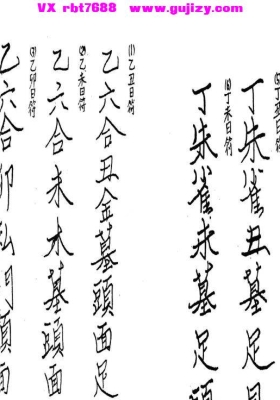 VX rbt7688 www.gujizy.com
丁朱雀丑墓足
(6)丁未日符
丁朱雀未墓足頭
(1)乙丑日符
乙六合丑金墓頭面足
(2)乙未日符
乙六合未木墓頭面
(3)乙卯日符
乙六合卯私門頂面